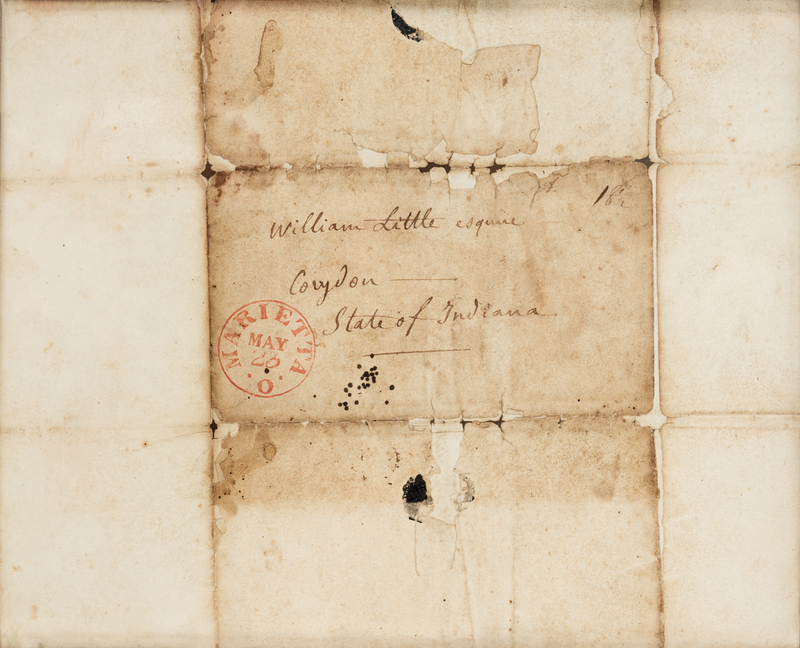 18½
William Little esquire
Corydon
State of Indiana
MARIETTA
MAY
23
O